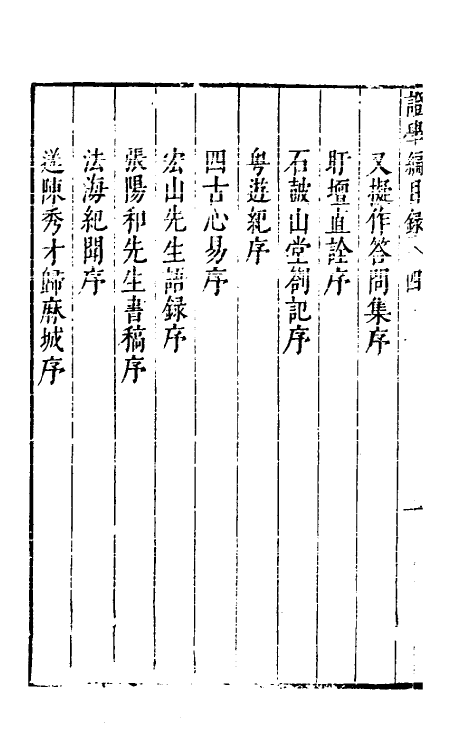 證學編目錄 四 一
又擬作答問集序
盱壇直詮序
石皷山堂劄記序
粤遊紀序
四古心易序
宏山先生語録序
張陽和先生書稿序
法海紀聞序
送陳秀才歸麻城序